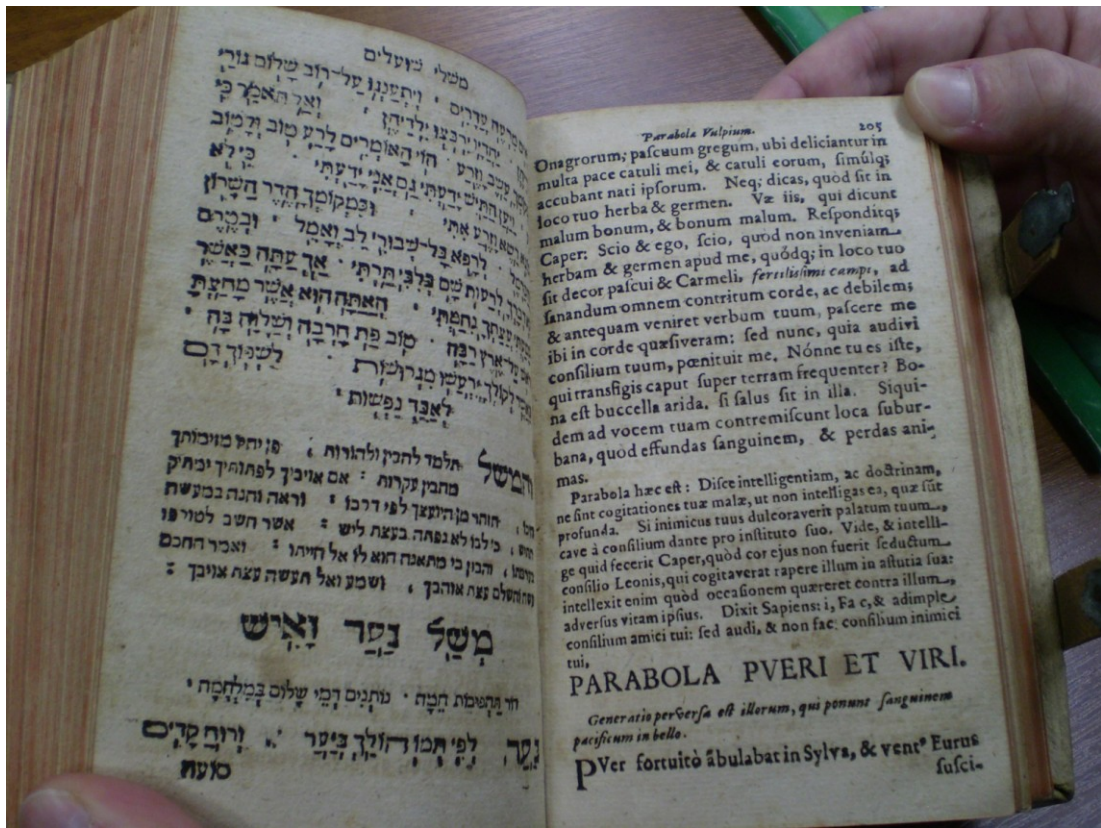 משלי שועלים
ויתענגו על־רוב שלום גורי
ירבצו ילדיהן ואל תאמר כי
עשב וזרע הוי האומרים לרע טוב ולטוב
ויען התיש ידעתי גם אני ידעתי כי לא
זרע אתי ובמקומך הדר השרון
לרפא כל־שבורי לב ואמל ובטרם
לרעות שם בלבי אך עתה כאשר
עצתך נחמתי האתה הוא אשר מחצת
על־ארץ רבה טוב פת חרבה ושלוה בה
לקולך ירעשו מגרשות לשפוך דם
לאבד נפשות
והמשל תלמד להבין ולהורות פן יהיו מזימותך
מהבין עקרות אם אויבך לפתותיך ימתיק
חכו הזהר מן היועצך לפי דרכו וראה והנה במעשה
כי לבו לא נפתה בעצת ליש אשר חשב לטורפו
והבין כי מתאנה הוא לו אל חייתו ואמר החכם
עשה והשלם עצת אוהבך ושמע ואל תעשה עצת אויבך
משל נער ואיש
דור תהפוכות המה נותנים דמי שלום במלחמה
נער לפי תמו הולך ביער ורוח קדים
סועה
Parabola Vulpium. 205
Onagrorum; pascuum gregum, ubi deliciantur in
multa pace catuli mei, & catuli eorum, simulq;
accubant nati ipsorum. Neq; dicas, quòd sit in
loco tuo herba & germen. Væ iis, qui dicunt
malum bonum, & bonum malum. Responditq;
Caper: Scio & ego, scio, quod non inveniam
herbam & germen apud me, quódq; in loco tuo
sit decor pascui & Carmeli, fertilissimi campi, ad
sanandum omnem contritum corde, ac debilem;
& antequam veniret verbum tuum, pascere me
ibi in corde quæsiveram: sed nunc, quia audivi
consilium tuum, pœnituit me. Nónne tu es iste,
qui transfigis caput super terram frequenter? Bo-
na est buccella arida, si salus sit in illa. Siqui-
dem ad vocem tuam contremiscunt loca subur-
bana, quòd effundas sanguinem, & perdas ani-
mas.
Parabola hæc est: Disce intelligentiam, ac doctrinam,
ne sint cogitationes tuæ malæ, ut non intelligas ea, quæ sūt
profunda. Si inimicus tuus dulcoraverit palatum tuum,
cave à consilium dante pro instituto suo. Vide, & intelli-
ge quid fecerit Caper, quòd cor ejus non fuerit seductum
consilio Leonis, qui cogitaverat rapere illum in astutia sua:
intellexit enim quòd occasionem quæreret contra illum,
adversus vitam ipsius. Dixit Sapiens: i, Fac, & adimple
consilium amici tui: sed audi, & non fac consilium inimici
tui,
PARABOLA PVERI ET VIRI.
Generatio perversa est illorum, qui ponunt sanguinem
pacificum in bello.
PVer fortuitò ābulabat in Sylva, & ventꝰ Eurus
susci-